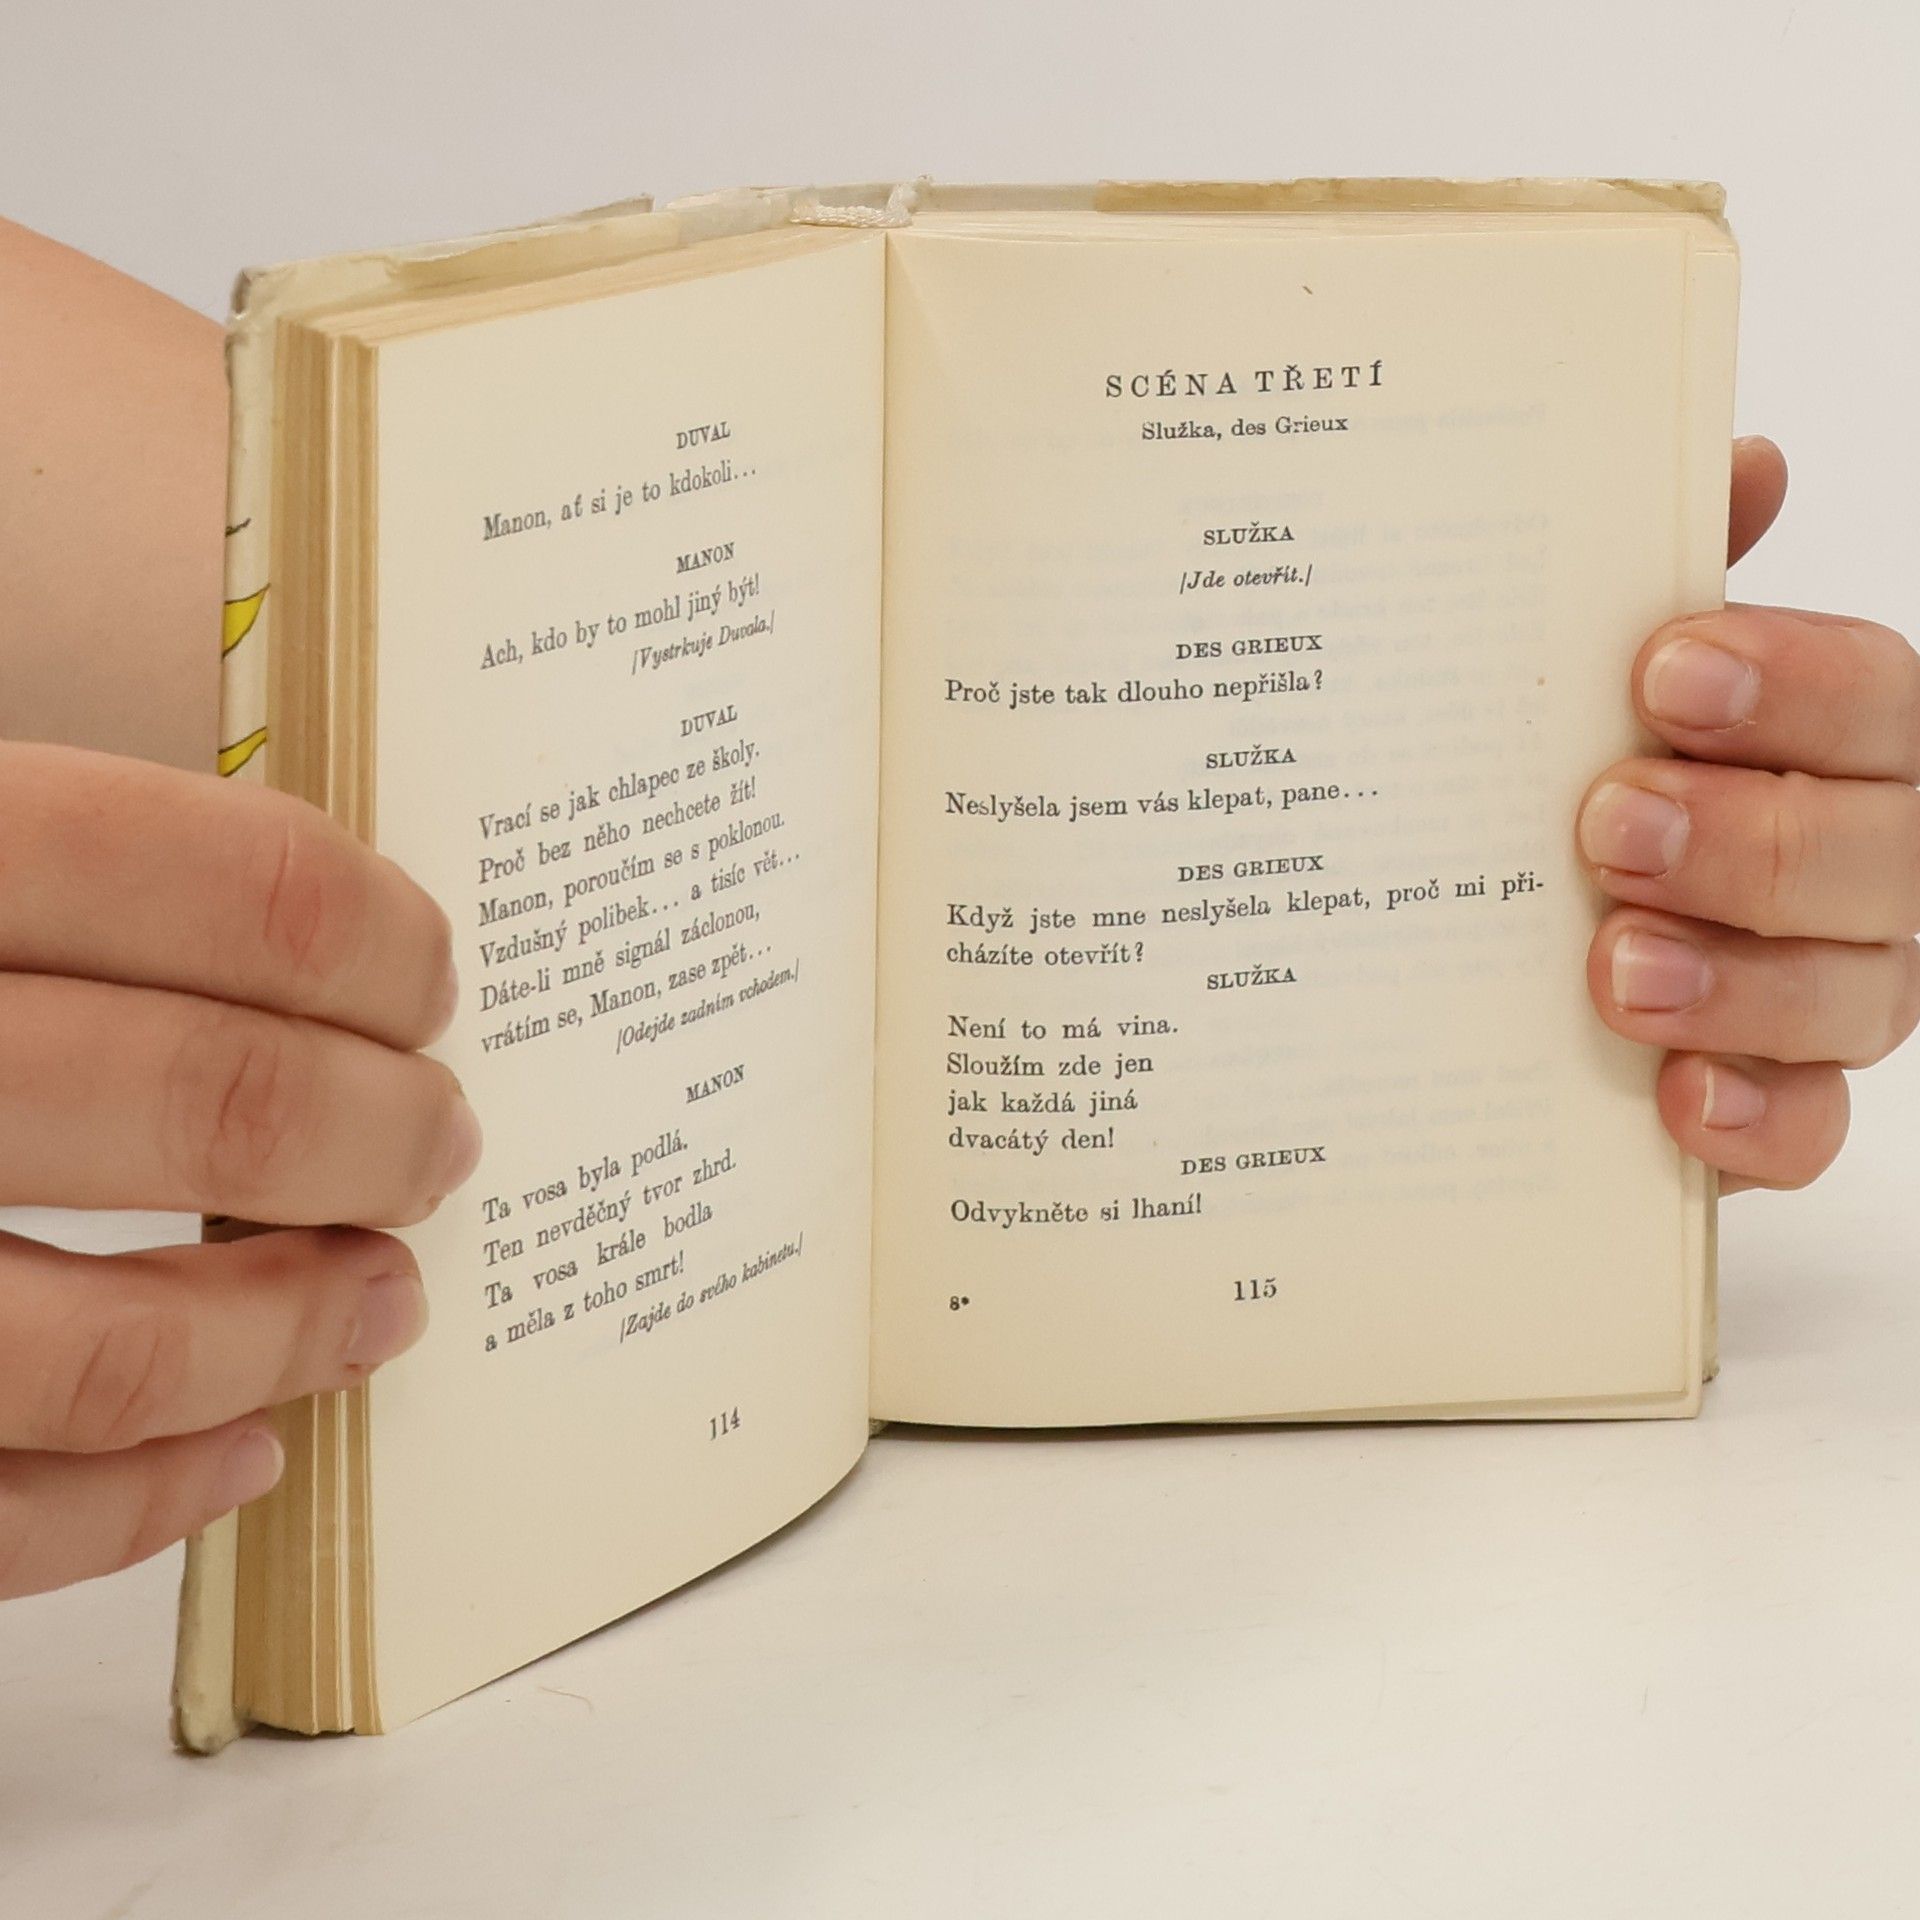 DUVAL
Manon, ať si je to kdokoli...
MANON
Ach, kdo by to mohl jiný být!
/Vystrkuje Duvala./
DUVAL
Vrací se jak chlapec ze školy.
Proč bez něho nechcete žít!
Manon, poroučím se s poklonou.
Vzdušný polibek... a tisíc vět...
Dáte-li mně signál záclonou,
vrátím se, Manon, zase zpět...
/Odejde zadním vchodem./
MANON
Ta vosa byla podlá.
Ten nevděčný tvor zhrd.
Ta vosa krále bodla
a měla z toho smrt!
/Zajde do svého kabinetu./
114
SCÉNA TŘETÍ
Služka, des Grieux
SLUŽKA
/Jde otevřít./
DES GRIEUX
Proč jste tak dlouho nepřišla?
SLUŽKA
Neslyšela jsem vás klepat, pane...
DES GRIEUX
Když jste mne neslyšela klepat, proč mi při-
cházíte otevřít?
SLUŽKA
Není to má vina.
Sloužím zde jen
jak každá jiná
dvacátý den!
DES GRIEUX
Odvykněte si lhaní!
8*
115